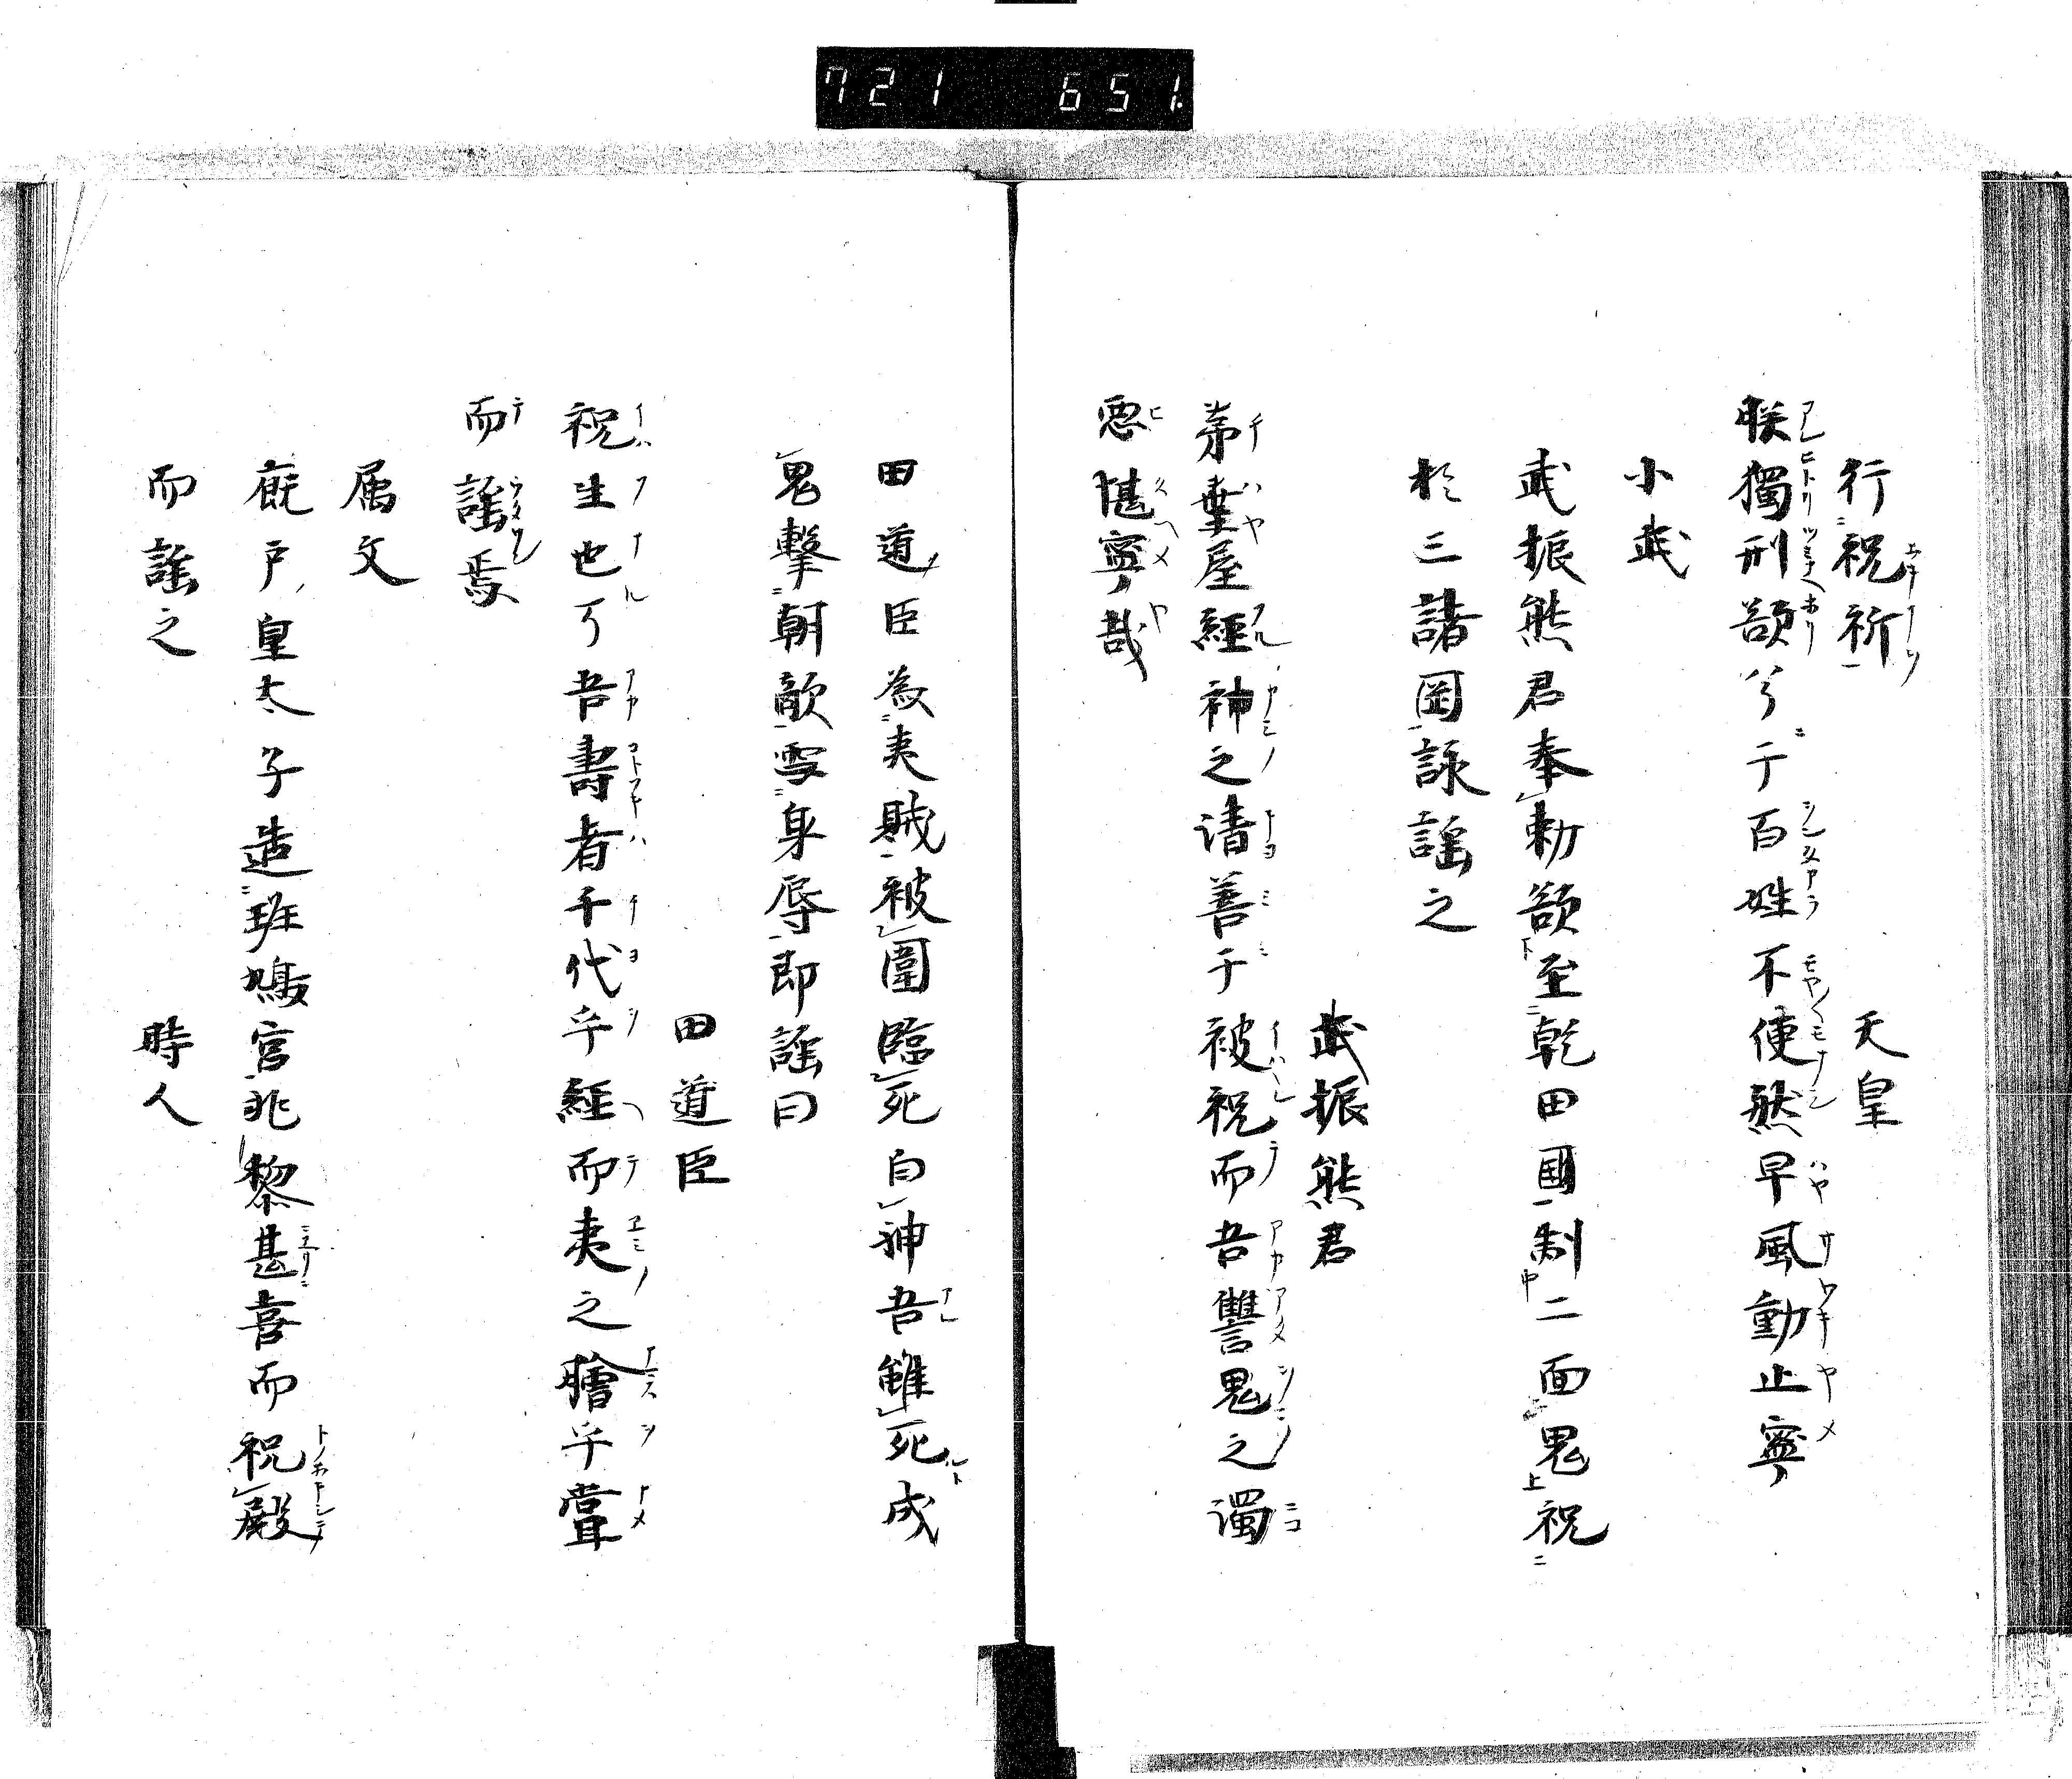 721 651
行祝祈 天皇
朕獨刑欲兮于百姓不使然早風動止寧
小武
武振熊君奉勅欲至乾田國制二面鬼祝
於三諸岡詠謡之
武振熊君
茅葉屋經神之清善于被祝而吾讐鬼之濁
悪堪寧哉
田道臣為夷賊被圍臨死白神吾雖死成
鬼撃朝敵雪身辱即謡曰
田道臣
祝生也吾壽者千代乎經而夷之膾乎嘗
而謡焉
属文
廐戸皇太子造班鳩宮兆黎甚喜而祝殿
而謡之 時人